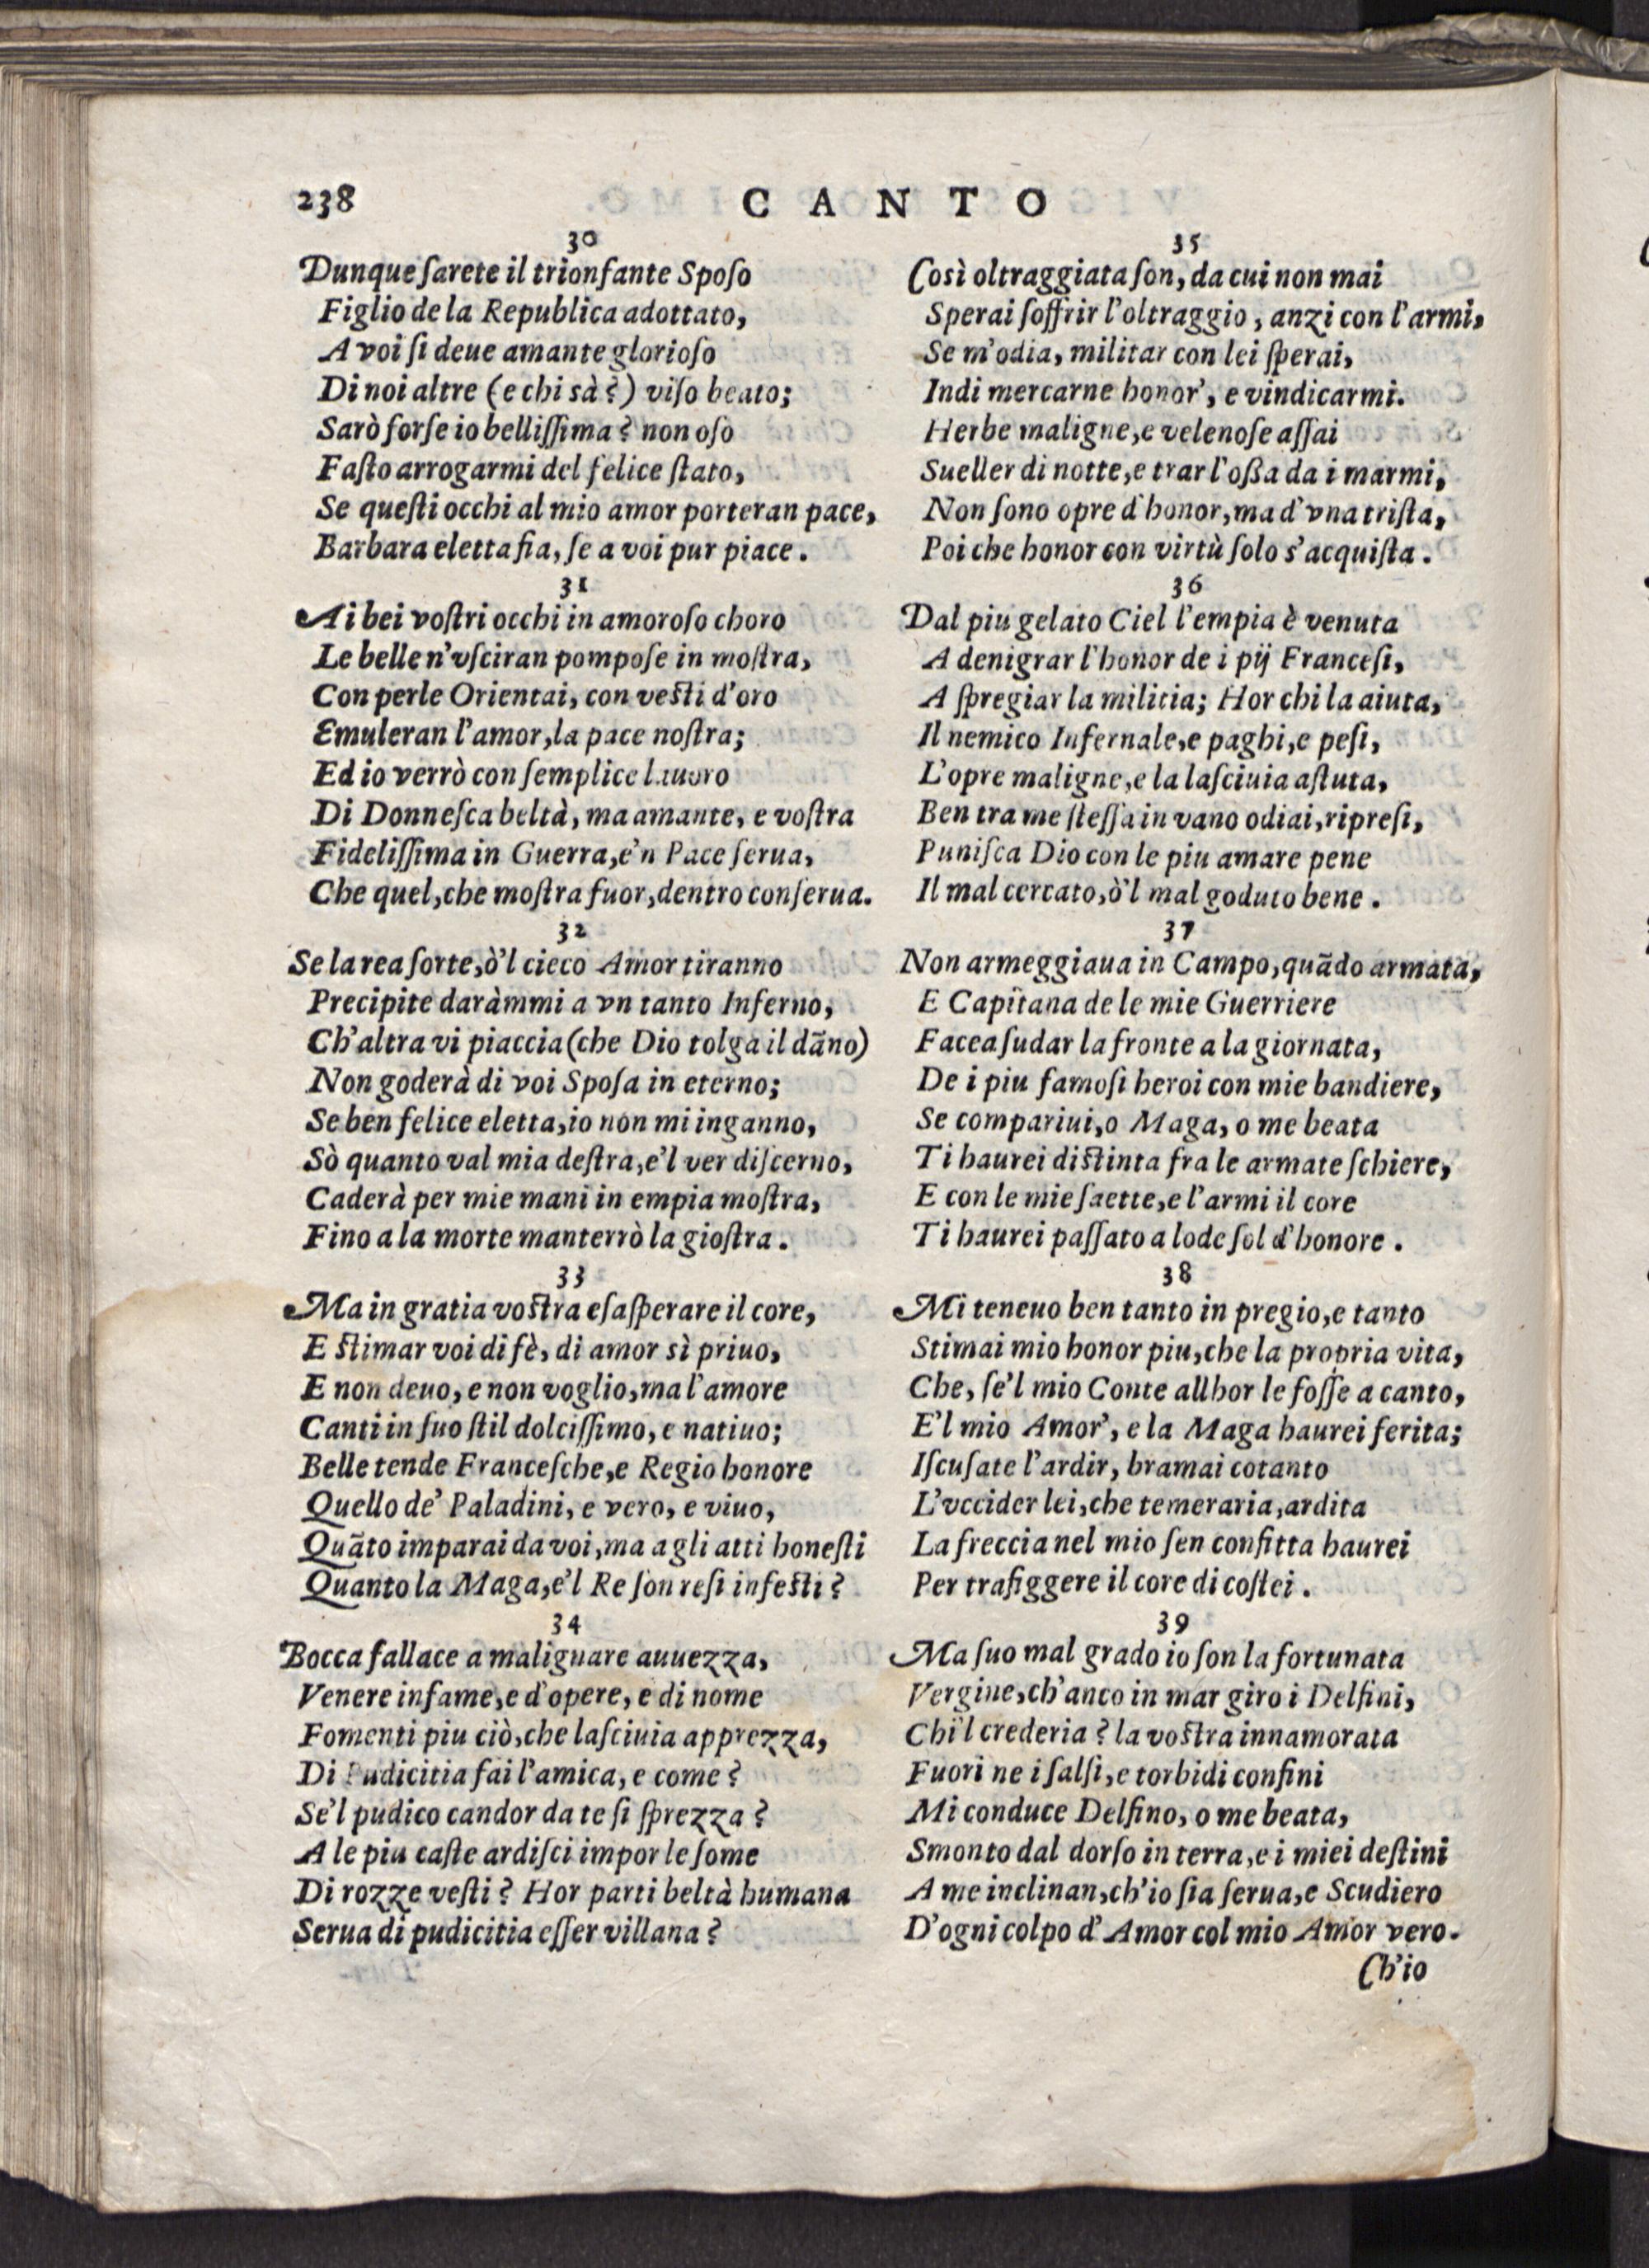 238
CANTO
30
Dunque ſarete il trionfante Spoſo
Figlio de la Republica adottato,
A voi ſi deue amante glorioſo
Di noi altre (e chi sà?) viſo beato;
Sarò forſe io belliſſima? non oſo
Faſto arrogarmi del felice ſtato,
Se queſti occhi al mio amor porteran pace,
Barbara eletta fia, ſe a voi pur piace.
31
Ai bei voſtri occhi in amoroſo choro
Le belle n'vſciran pompoſe in moſtra,
Con perle Orientai, con veſti d'oro
Emuleran l'amor, la pace noſtra;
Ed io verrò con ſemplice lauoro
Di Donneſca beltà, ma amante, e voſtra
Fideliſſima in Guerra, e'n Pace ſerua,
Che quel, che moſtra fuor, dentro conſerua.
32
Se la rea ſorte, ò'l cieco Amor tiranno
Precipite daràmmi a vn tanto Inferno,
Ch'altra vi piaccia (che Dio tolga il dãno)
Non goderà di voi Spoſa in eterno;
Se ben felice eletta, io non mi inganno,
Sò quanto val mia deſtra, e'l ver diſcerno,
Caderà per mie mani in empia moſtra,
Fino a la morte manterrò la gioſtra.
33
Ma in gratia voſtra eſaſperare il core,
E ſtimar voi di fè, di amor sì priuo,
E non deuo, e non voglio, ma l'amore
Canti in ſuo ſtil dolciſſimo, e natiuo;
Belle tende Franceſche, e Regio honore
Quello de' Paladini, e vero, e viuo,
Quãto imparai da voi, ma a gli atti honeſti
Quanto la Maga, e'l Re ſon reſi infeſti?
34
Bocca fallace a malignare auuezza,
Venere infame, e d'opere, e di nome
Fomenti piu ciò, che laſciuia apprezza,
Di Pudicitia fai l'amica, e come?
Se'l pudico candor da te ſi ſprezza?
A le piu caſte ardiſci impor le ſome
Di rozze veſti? Hor parti beltà humana
Serua di pudicitia eſſer villana?
35
Così oltraggiata ſon, da cui non mai
Sperai ſoffrir l'oltraggio, anzi con l'armi,
Se m'odia, militar con lei ſperai,
Indi mercarne honor', e vindicarmi.
Herbe maligne, e velenoſe aſſai
Sueller di notte, e trar l'oßa da i marmi,
Non ſono opre d'honor, ma d'vna triſta,
Poi che honor con virtù ſolo s'acquiſta.
36
Dal piu gelato Ciel l'empia è venuta
A denigrar l'honor de i pij Franceſi,
A ſpregiar la militia; Hor chi la aiuta,
Il nemico Infernale, e paghi, e peſi,
L'opre maligne, e la laſciuia aſtuta,
Ben tra me ſteſſa in vano odiai, ripreſi,
Puniſca Dio con le piu amare pene
Il mal cercato, ò'l mal goduto bene.
37
Non armeggiaua in Campo, quãdo armata,
E Capitana de le mie Guerriere
Facea ſudar la fronte a la giornata,
De i piu famoſi heroi con mie bandiere,
Se compariui, o Maga, o me beata
Ti haurei diſtinta fra le armate ſchiere,
E con le mie ſaette, e l'armi il core
Ti haurei paſſato a lode ſol d'honore.
38
Mi teneuo ben tanto in pregio, e tanto
Stimai mio honor piu, che la propria vita,
Che, ſe'l mio Conte allhor le foſſe a canto,
E'l mio Amor', e la Maga haurei ferita;
Iſcuſate l'ardir, bramai cotanto
L'vccider lei, che temeraria, ardita
La freccia nel mio ſen confitta haurei
Per trafiggere il core di coſtei.
39
Ma ſuo mal grado io ſon la fortunata
Vergine, ch'anco in mar giro i Delfini,
Chi'l crederia? la voſtra innamorata
Fuori ne i ſalſi, e torbidi confini
Mi conduce Delfino, o me beata,
Smonto dal dorſo in terra, e i miei deſtini
A me inclinan, ch'io ſia ſerua, e Scudiero
D'ogni colpo d'Amor col mio Amor vero.
Ch'io